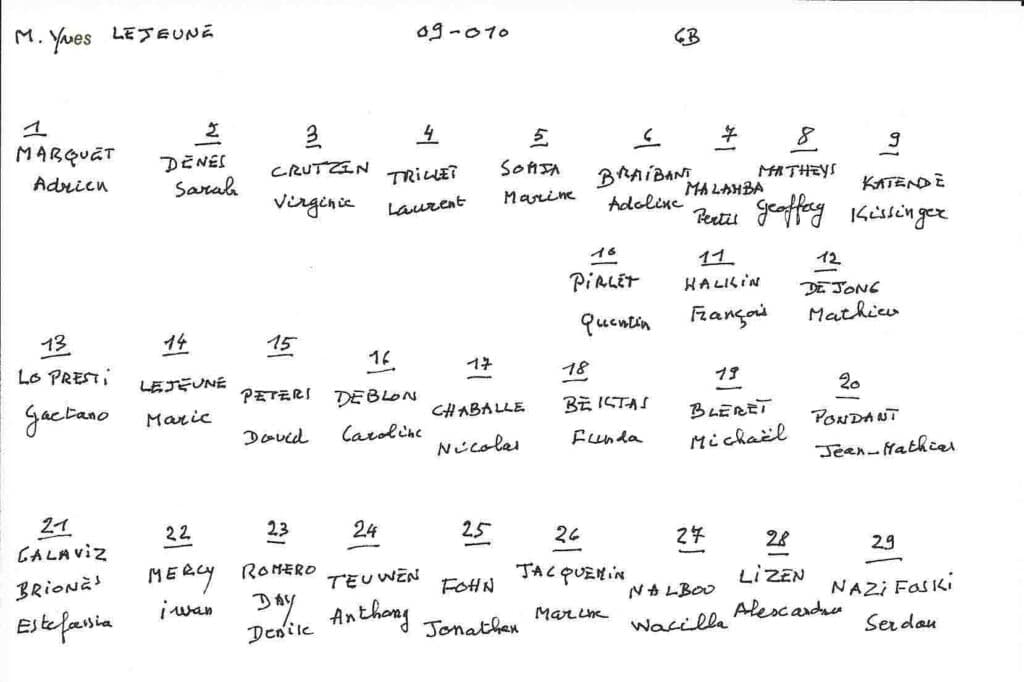 M. Yves LEJEUNE 09-010 6B
1 2 3 4 5 6 7 8 9
MARQUET DENES CRUTZEN TRILLET SOMJA BRAIBANT MALAMBA MATHEYS KATENDE
Adrien Sarah Virginie Laurent Marine Adeline Geoffroy Kissinger
10 11 12
PIRLET HALKIN DE JONG
Quentin François Mathieu
13 14 15 16 17 18 19 20
LO PRESTI LEJEUNE PETERS DEBLON CHABALLE BEKTAS BLERET PONDANT
Gaetano Marie David Caroline Nicolas Funda Michaël Jean-Mathieu
21 22 23 24 25 26 27 28 29
GALAVIZ MERCY ROMERO TEUWEN FOHN JACQUEMIN NALBOU LIZEN
BRIONES iwan DAY Anthony Jonathan Marine Wacilla Serdan
Denise